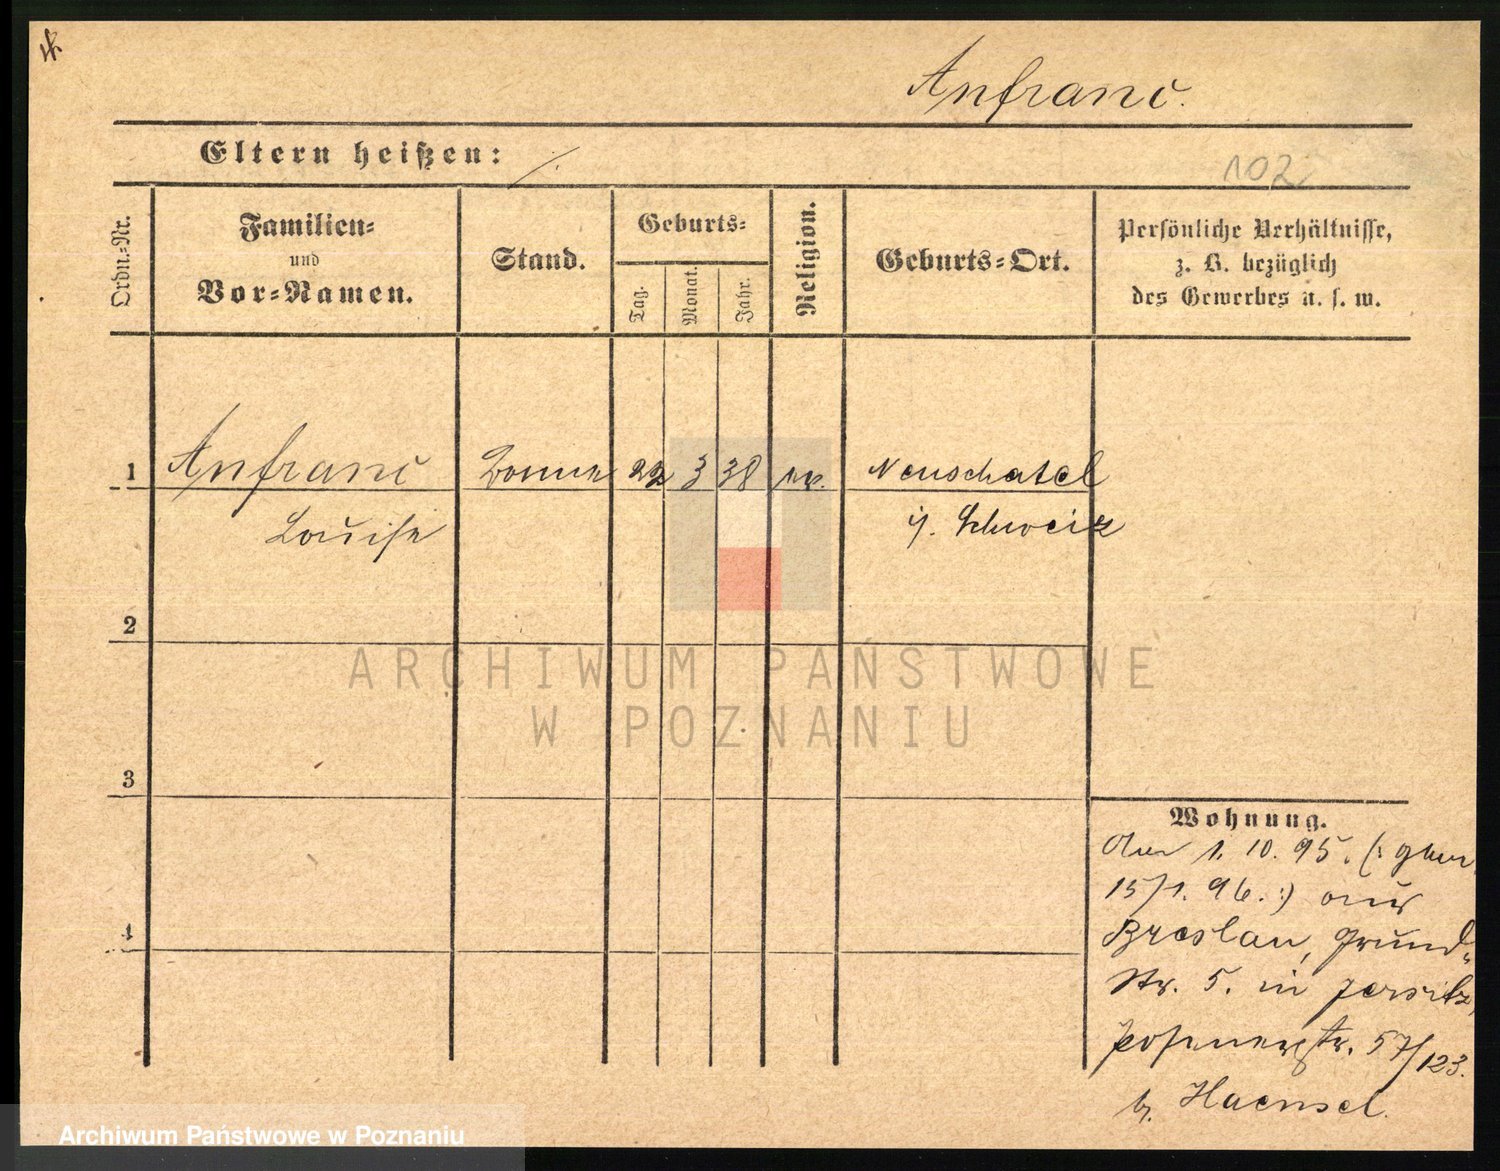 Anfranc.
Eltern heißen: ./.
102
Ordn.-Nr.
Familien-
und
Vor-Namen.
Stand.
Geburts-
Tag.
Monat.
Jahr.
Religion.
Geburts-Ort.
Persönliche Verhältnisse,
z. B. bezüglich
des Gewerbes u. s. w.
1 Anfranc 22 3 38 Neuschatel
Louise i/. Schweiz
2
3
4
Wohnung.
1. 10. 95. (:
15/1. 96. :) aus
Breslau, Grund-
Str. 5. in Jersitz,
Posenerstr. 57/123.
b. Haensel.
ARCHIWUM PAŃSTWOWE
W POZNANIU
Archiwum Państwowe w Poznaniu